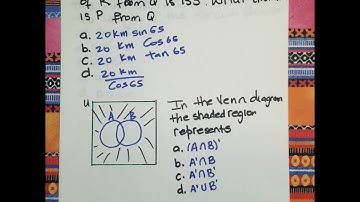 of R from Q is 155. What
is P from Q
a. 20km sin 65
b. 20 km Cos 65
c. 20 km tan 65
d. 20 km
Cos 65
U
A B
In the Venn diagram
the shaded region
represents
a. (A∩B)'
b. A'∩B
c. A'∩B'
d. A'∪B'